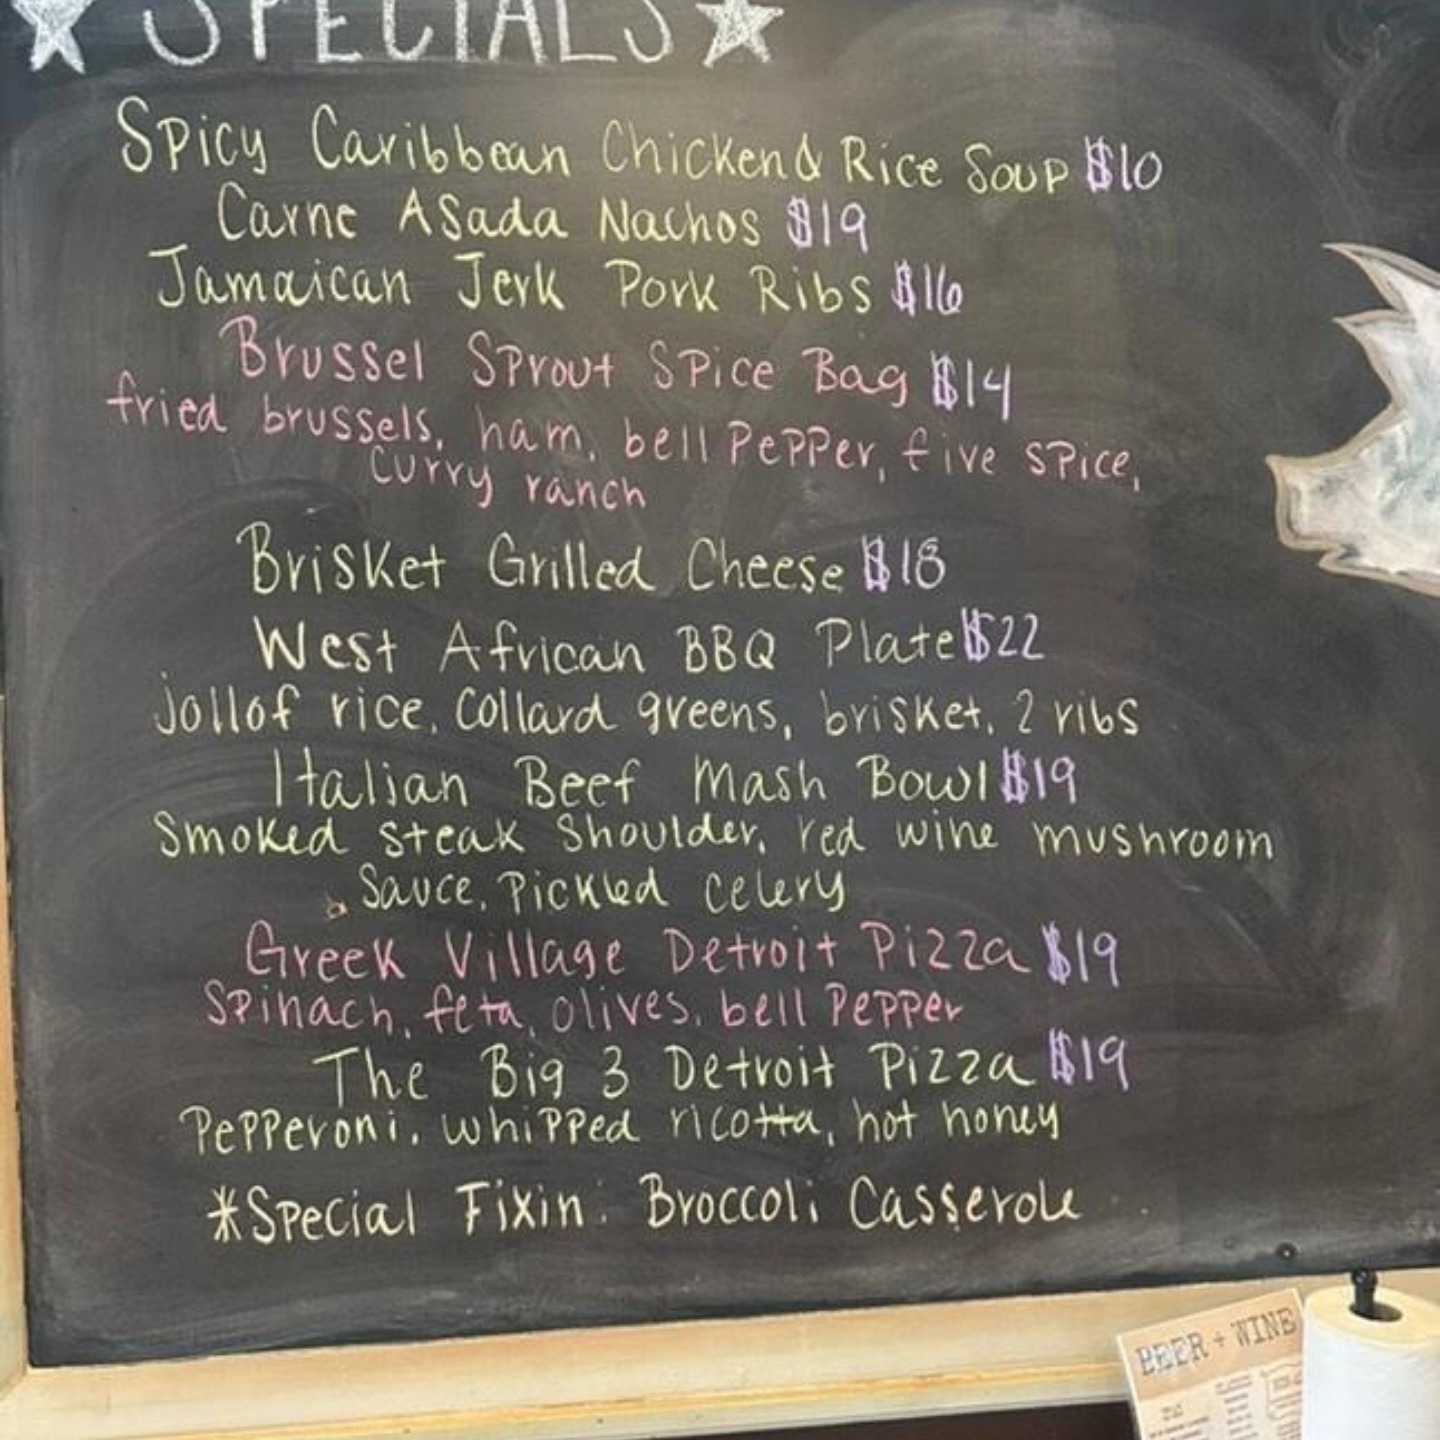 SPECIALS
Spicy Caribbean Chicken & Rice Soup $10
Carne Asada Nachos $19
Jamaican Jerk Pork Ribs $16
Brussel Sprout Spice Bag $14
fried brussels, ham, bell pepper, five spice,
curry ranch
Brisket Grilled Cheese $18
West African BBQ Plate $22
jollof rice, collard greens, brisket, 2 ribs
Italian Beef Mash Bowl $19
Smoked steak shoulder, red wine mushroom
sauce, pickled celery
Greek Village Detroit Pizza $19
Spinach, feta, olives, bell pepper
The Big 3 Detroit Pizza $19
Pepperoni, whipped ricotta, hot honey
*Special Fixin: Broccoli Casserole
BEER + WINE